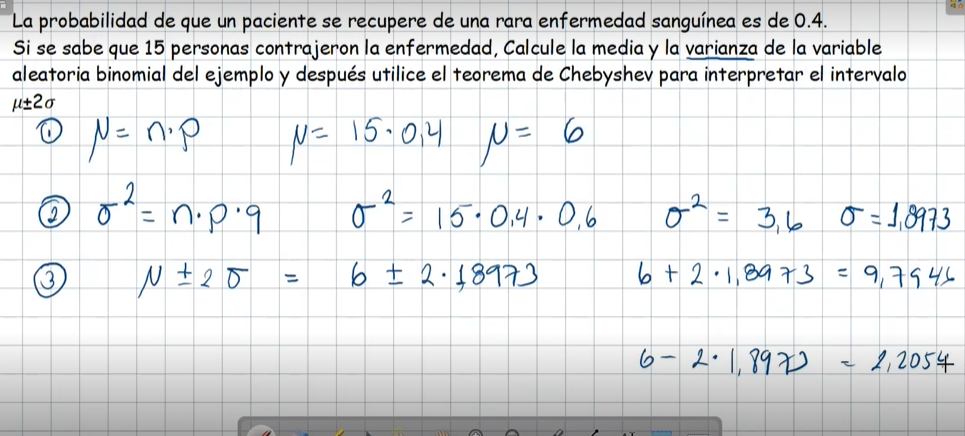 La probabilidad de que un paciente se recupere de una rara enfermedad sanguínea es de 0.4.
Si se sabe que 15 personas contrajeron la enfermedad, Calcule la media y la varianza de la variable
aleatoria binomial del ejemplo y después utilice el teorema de Chebyshev para interpretar el intervalo
μ±2σ
① μ = n·p μ = 15·0,4 μ = 6
② σ² = n·p·q σ² = 15·0,4·0,6 σ² = 3,6 σ = 1,8973
③ μ ± 2σ = 6 ± 2·1,8973 6 + 2·1,8973 = 9,7946
6 - 2·1,8973 = 2,2054